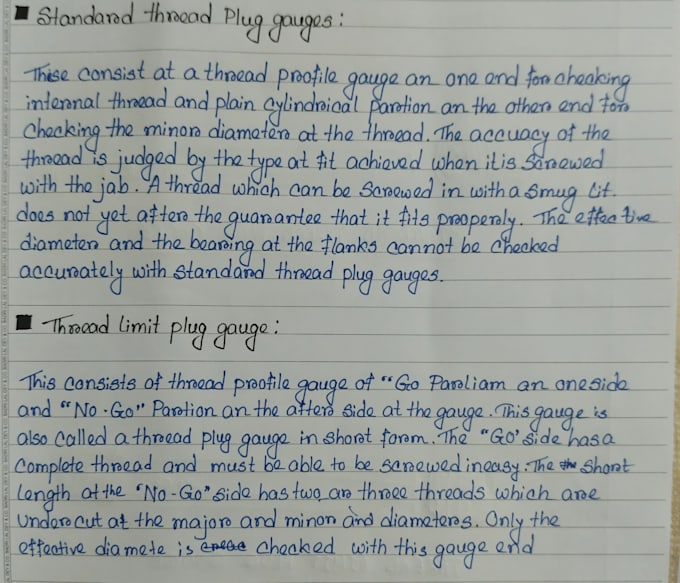 ■ Standard thread Plug gauges:
These consist at a thread profile gauge an one end for checking
internal thread and plain cylindrical parotion an the other end for
checking the minor diameter at the thread. The accuacy of the
thread is judged by the type at fit achieved when it is screwed
with the jab. A thread which can be screwed in with a smug Lit.
does not yet after the guarantee that it fits properly. The effective
diameter and the bearing at the flanks cannot be checked
accurately with standard thread plug gauges.
■ Thread limit plug gauge:
This consists of thread profile gauge of "Go Paroliam an one side
and "No-Go" Parotion an the after side at the gauge. This gauge is
also called a thread plug gauge in short form. The "Go' side has a
complete thread and must be able to be screwed in easy. The short
Length at the "No-Go" side has two are three threads which are
Under cut at the major and minor and diameters. Only the
effective diamete is checked with this gauge end